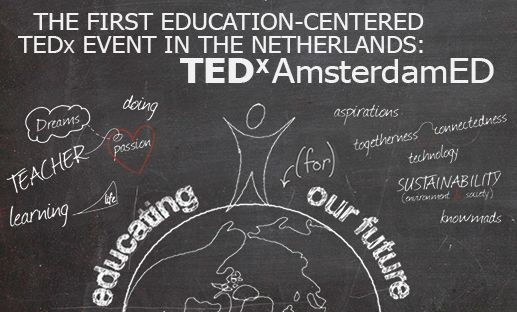 THE FIRST EDUCATION-CENTERED
TEDx EVENT IN THE NETHERLANDS:
TEDxAmsterdamED
Dreams
doing
TEACHER
passion
learning
life
aspirations
togetherness connectedness
technology
SUSTAINABILITY
(environment & society)
knowmads
educating
(for)
our future